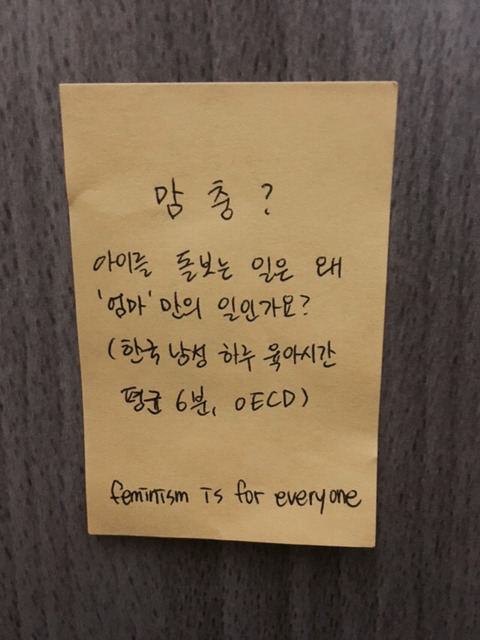 맘충?
아이를 돌보는 일은 왜
'엄마'만의 일인가요?
(한국 남성 하루 육아시간
평균 6분, OECD)
feminism is for everyone